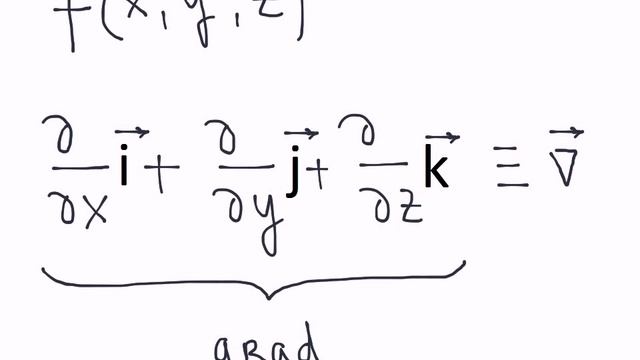 f(x, y, z)
∂/∂x i⃗ + ∂/∂y j⃗ + ∂/∂z k⃗ ≡ ∇⃗
grad